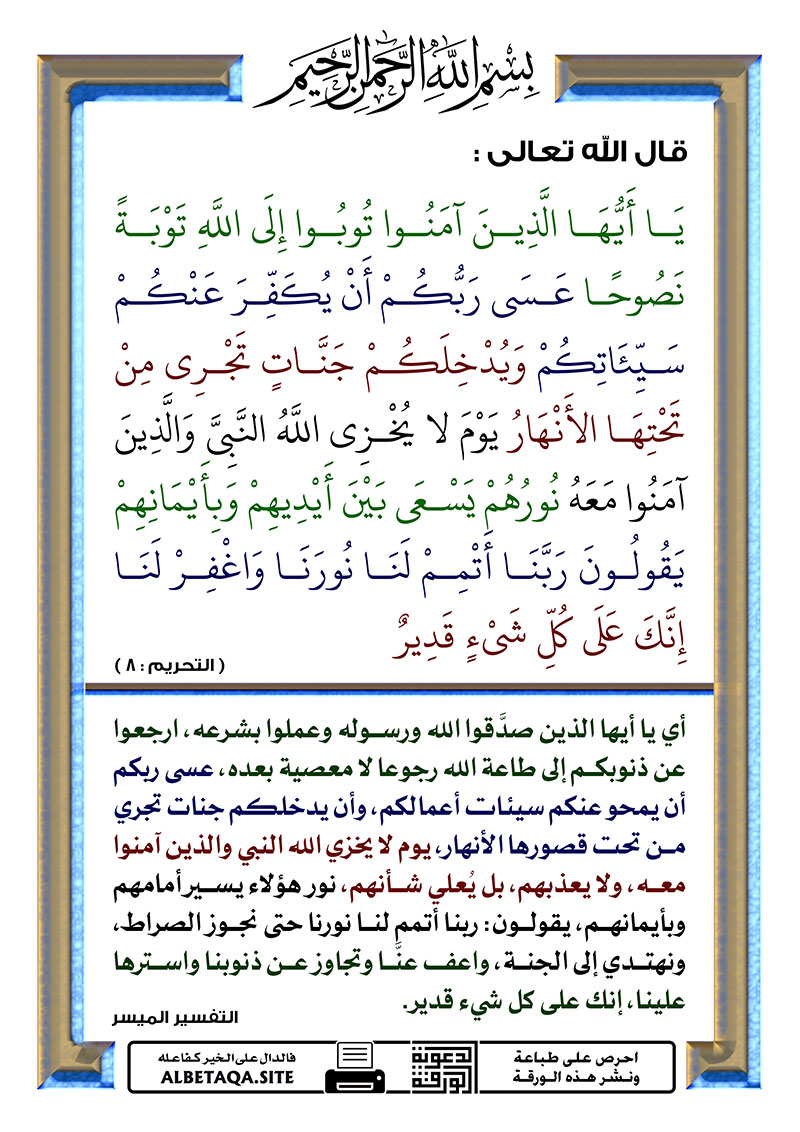 بِسْمِ اللَّهِ الرَّحْمَنِ الرَّحِيمِ
قال الله تعالى :
يَا أَيُّهَا الَّذِينَ آمَنُوا تُوبُوا إِلَى اللَّهِ تَوْبَةً
نَصُوحًا عَسَى رَبُّكُمْ أَنْ يُكَفِّرَ عَنْكُمْ
سَيِّئَاتِكُمْ وَيُدْخِلَكُمْ جَنَّاتٍ تَجْرِى مِنْ
تَحْتِهَا الأَنْهَارُ يَوْمَ لا يُخْزِى اللَّهُ النَّبِىَّ وَالَّذِينَ
آمَنُوا مَعَهُ نُورُهُمْ يَسْعَى بَيْنَ أَيْدِيهِمْ وَبِأَيْمَانِهِمْ
يَقُولُونَ رَبَّنَا أَتْمِمْ لَنَا نُورَنَا وَاغْفِرْ لَنَا
إِنَّكَ عَلَى كُلِّ شَىْءٍ قَدِيرٌ
( التحريم : ٨ )
أي يا أيها الذين صدَّقوا الله ورسوله وعملوا بشرعه، ارجعوا
عن ذنوبكم إلى طاعة الله رجوعا لا معصية بعده، عسى ربكم
أن يمحو عنكم سيئات أعمالكم، وأن يدخلكم جنات تجري
من تحت قصورها الأنهار، يوم لا يخزي الله النبي والذين آمنوا
معه، ولا يعذبهم، بل يُعلي شأنهم، نور هؤلاء يسير أمامهم
وبأيمانهم، يقولون: ربنا أتمم لنا نورنا حتى نجوز الصراط،
ونهتدي إلى الجنة، واعف عنَّا وتجاوز عن ذنوبنا واسترها
علينا، إنك على كل شيء قدير.
التفسير الميسر
احرص على طباعة
ونشر هذه الورقة
الورقة
الدعوية
فالدال على الخير كفاعله
ALBETAQA.SITE